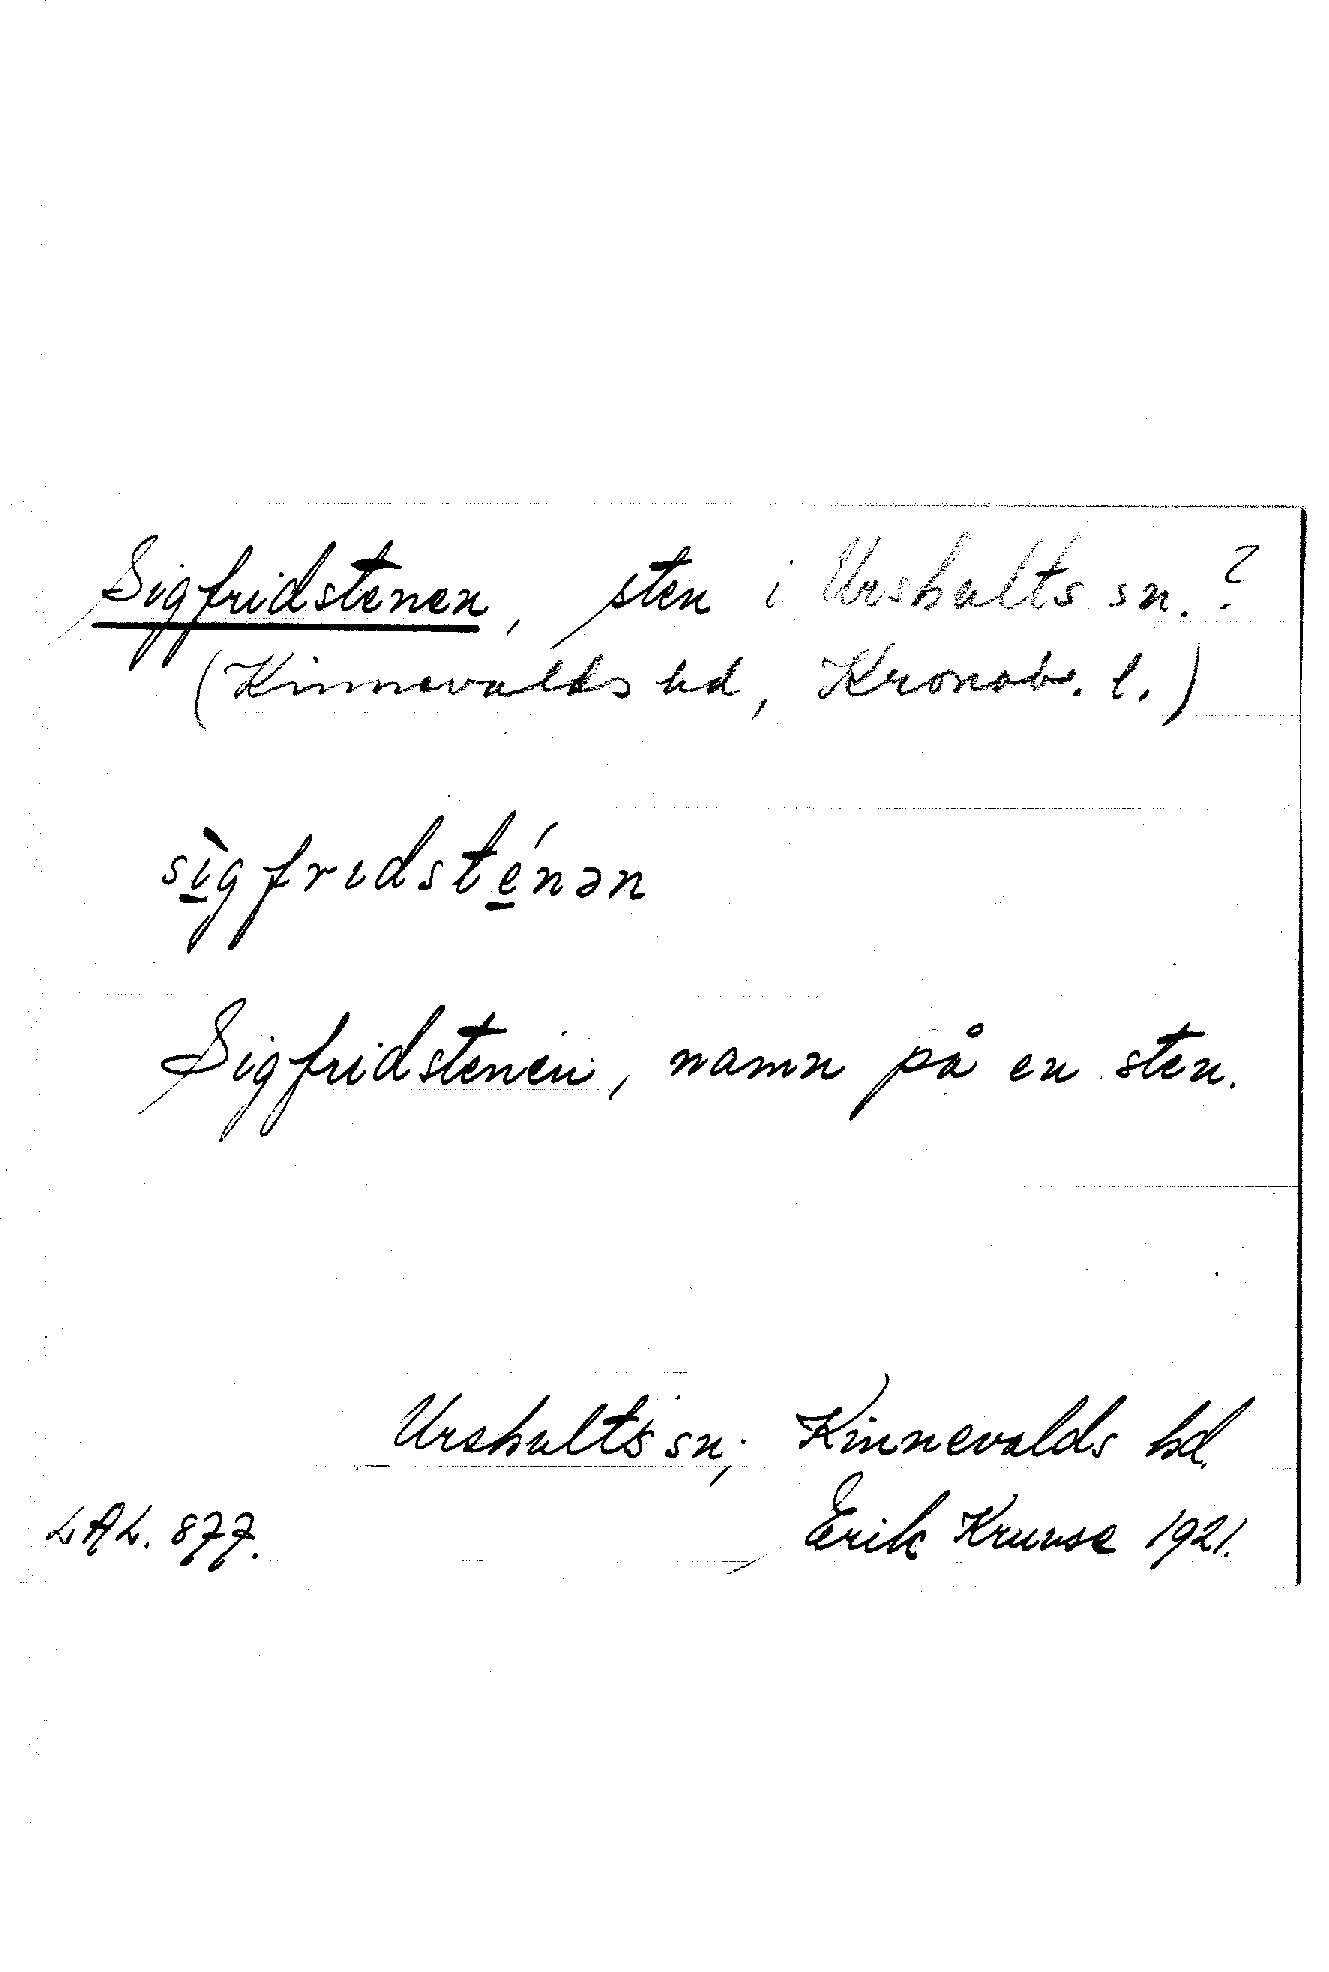 Sigfridstenen, sten i Urshults sn.?
(Kinnevalds hd, Kronob. l.)
sìgfrıdsténən
Sigfridstenen, namn på en sten.
Urshults sn; Kinnevalds hd.
LAL. 877. Erik Kruuse 1921.